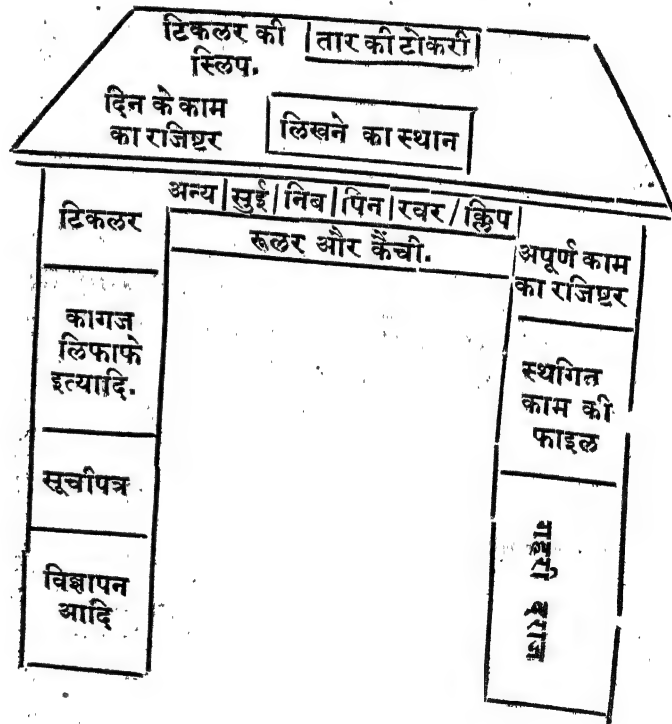 टिकलर की |तार की टोकरी|
स्लिप.
दिन के काम
का राजिष्टर
लिखने का स्थान
अन्य|सुई|निब|पिन|रवर/क्लिप
रूलर और कैंची.
टिकलर
कागज
लिफाफे
इत्यादि.
सूचीपत्र
विज्ञापन
आदि
अपूर्ण काम
का राजिष्टर
स्थगित
काम की
फाइल
गहरी दराज